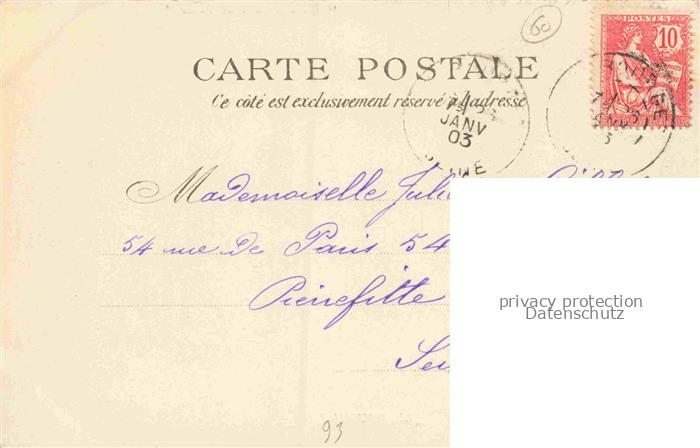 60
POSTES
10
CARTE POSTALE
Ce côté est exclusivement réservé à l'adresse
JANV
03
SEINE
Mademoiselle
54 rue de Paris 54
Pierrefitte
privacy protection
Datenschutz
93